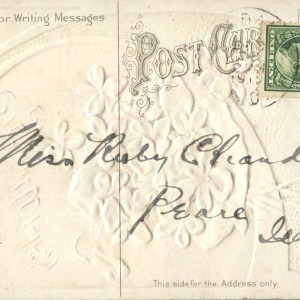 or Writing Messages
POST CAR
Miss Ruby Chand
Pearl
Ill
This side for the Address only